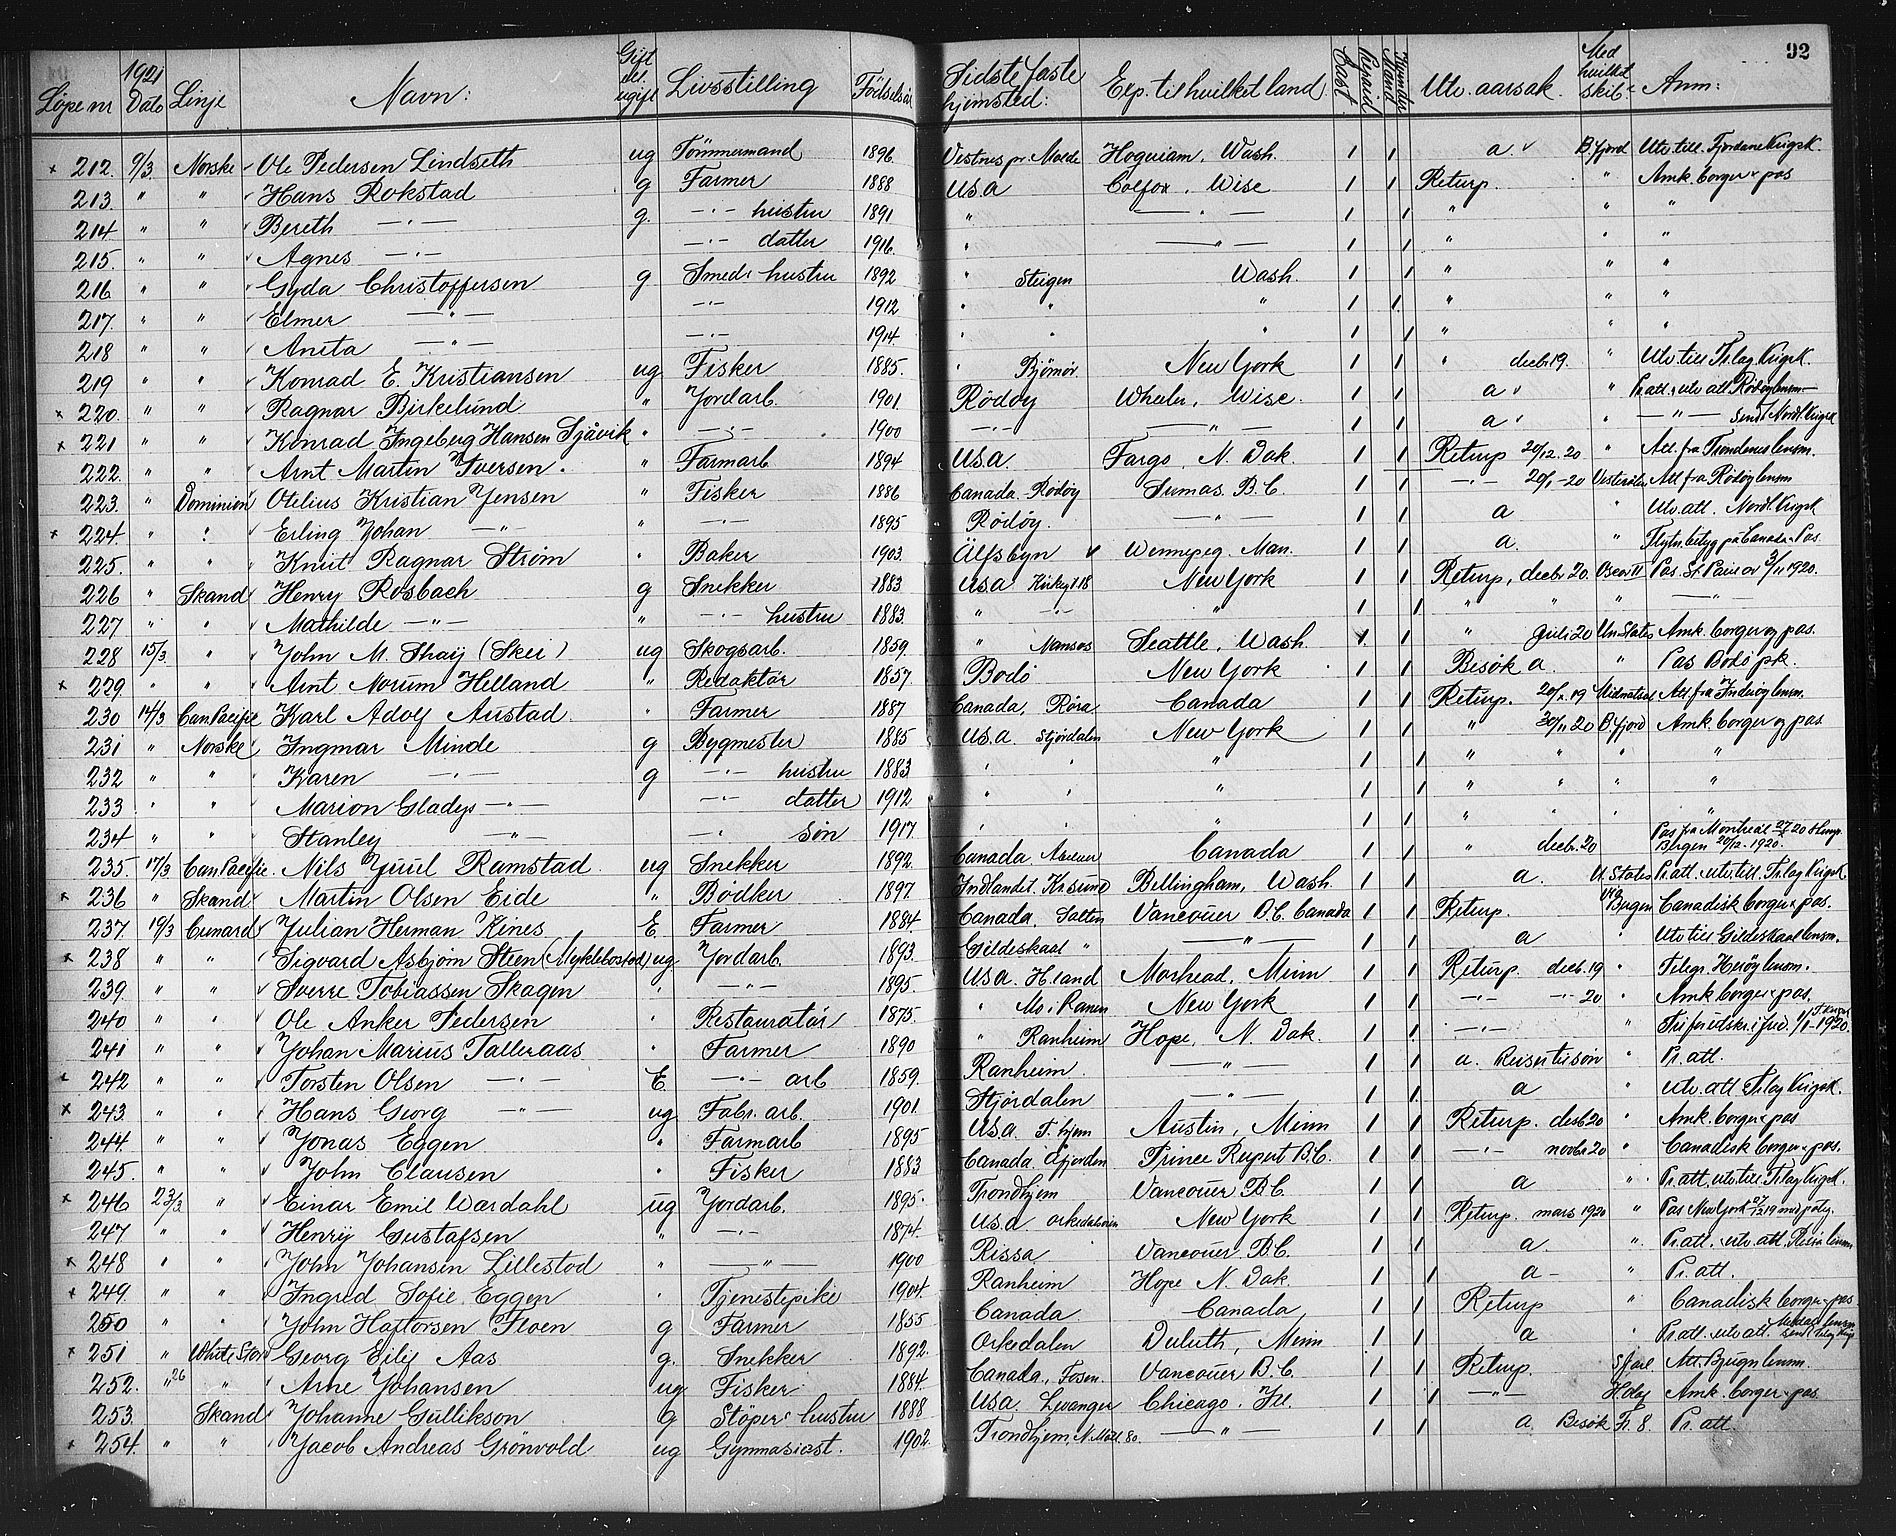 92
Løpe nr 1921 Dato Linje Navn: Gift el. ugift Livsstilling Födselsår Sidste faste hjemsted: Exp. til hvilket land Utv. aarsak Med hvilket skib: Anm:
x 212. 9/3 Norske Ole Pedersen Lindseth ug Tömmermand 1896 Vestnes pr Molde Hoquiam, Wash. 1 1 a. B.fjord Utv. till. Fjordane Krigsk.
213. " " Hans Rokstad g Farmer 1888 USA Colfax, Wisc 1 1 Returp. " Amk. borger pas
214 " " Bereth -"- g. -"- hustru 1891 " -"- 1 1 " " "
215. " " Agnes -"- -"- datter 1916. " -"- 1 1 " " "
216 " " Gyda Christoffersen g Smeds hustru 1892 " Steigen Wash. 1 1 " " "
217. " " Elmer -"- -"- 1912 " " " 1 1 " " "
218 " " Anita -"- -"- 1914. " " " 1 1 " " "
219 " " Konrad E. Kristiansen ug Fisker 1885. " Bjørnör New York 1 1 " decbr. 19. " Utv. till Tr.lag Krigsk.
x 220. " " Ragnar Birkelund " Jordarb. 1901. Rödöy Wheeler, Wisc. 1 1 a " Pr. att. utv att Rödöy lensm
x 221 " " Konrad Ingeberg Hansen Sjåvik " -"- 1900 -"- -"- 1 1 a " -"- Nordl. Krigsk
222. " " Arnt Martin Iversen. " Farmarb. 1894 USA. Fargo, N. Dak. 1 1 Returp 20/12. 20 " Att. fra Trondenes lensm.
223. " Dominion Otelius Kristian Jensen " Fisker 1886 Canada. Rödöy Sumas. B.C. 1 1 -"- 20/1-20 Att fra Rödöy lensm
x 224. " " Erling Johan -"- " -"- 1895 Rödöy. -"- 1 1 a " Utv. att. Nordl. Krigsk
225. " " Knut Ragnar Ström " Baker 1903. Älfsbyn Winnipeg. Man. 1 1 a. " Flytn. betyg på Canada. Pas
226 " Skand Henry Rosbach g Snekker 1883 USA New York 1 1 Returp, decbr 20. Oscar II Pas St. Paul av 3/11 1920.
227 " " Mathilde -"- " -"- hustru 1883. " -"- " 1 1 " " " -"-
228 15/3 " John M. Shaij (Skei) ug Skogsarb. 1859. " Namsos Seattle, Wash. 1 1 " Juli 20 Un. States Amk. borger og pas.
x 229. " " Arnt Norum Helland " Redaktör 1857. Bodö New York 1 1 Besök a. " Pas Bodö pk.
230 14/3 Can Pacific Karl Adolf Austad. " Farmer 1887 Canada, Röra Canada 1 1 Returp. Att. fra Inderöy lensm.
231 " Norske Ingmar Minde g Bygmester 1885 USA Stjördalen New York 1 1 " 30/11 20 B.fjord Amk borger og pas
232 " " Karen -"- g -"- hustru 1883 " " " 1 1 " " " "
233 " " Marion Gladys -"- -"- datter 1912 " " " 1 1 " " " "
234 " " Stanley -"- -"- sön 1917. " " " 1 1 " " " "
235. 17/3 Can Pacific. Nils Juul Ramstad ug Snekker 1892. Canada, Canada 1 1 " decbr. 20 Pas fra Montreal Bergen 20/12 - 1920.
x 236 " Skand Martin Olsen Eide " Bödker 1897. Kr.sund Bellingham, Wash. 1 1 a. U. States Pr. att. utv. till. Tr.lag Krigsk
237. 19/3 Cunard Julian Herman Kines. E. Farmer 1884. Canada, Salten Vancouver B.C. Canada 1 1 Returp. Bergen Canadisk borger pas.
x 238 " " Sigvard Asbjörn Steen (Myklebostad) ug Jordarb. 1893. Gildeskaal " -"- 1 1 a " Utv. till Gildeskaal lensm.
239. " " Sverre Tobiassen Skagen " -"- 1895. USA. H.land Morhead, Minn 1 1 Returp. decb. 19 " Telegr. Heröy lensm.
240 " " Ole Anker Pedersen " Restauratör 1875. " Mo i Ranen New York 1 1 -"- -"- 20 " Amk borger pas.
241 " " Johan Marius Talleraas " Farmer 1890 " Ranheim Hope, N. Dak. 1 1 -"- "
x 242 " " Torsten Olsen -"- E. -"- arb 1859. Ranheim. -"- 1 1 a. Reiser til sön " Pr. att.
x 243. " " Hans Georg -"- ug Fabr. arb. 1901. Stjördalen -"- 1 1 a " Utv. att Tr.lag Krigsk.
244. " " Jonas Eggen " Farmarb 1895 USA T. hjem Austin, Minn 1 1 Returp. decb 20 " Amk. borger pas
245. " " John Clausen " Fisker 1883 Canada Afjorden Prince Rupert B.C. 1 1 -"- novbr 20 " Canadisk borger pas.
x 246 23/3 " Einar Emil Wærdahl ug Jordarb. 1895. Trondhjem Vancouver B.C. 1 1 a " Pr. att. utv. till Tr.lag Krigsk.
247 " " Henry Gustafsen " -"- 1874. USA Orkedalen New York 1 1 Returp. mars 1920 " Pas New York
x 248 " " John Johansen Lillestad " -"- 1900 Rissa Vancouver B.C. 1 1 a. " Pr. att. utv. att. Rissa lensm
x 249. " " Ingrid Sofie Eggen " Tjenestepike 1904. Ranheim Hope N. Dak. 1 1 a - " Pr. att.
250 " " John Haftorsen Floen g Farmer 1855 Canada Canada 1 1 Returp " Canadisk borger pas
x 251 " White Star Georg Eilif Aas g. Snekker 1892. Orkedalen Duluth, Minn 1 1 a " Pr. att. utv. att.
252. "26 " Arne Johansen ug Fisker 1884. Canada, Fosen Vancouver B.C. 1 1 Returp. Att. Bjugn lensm.
253. Skand Johanne Gullikson g Stöpers hustru 1888 USA. Levanger Chicago. Ill. 1 1 -"- H. Olav Amk. borger pas
x 254. " " Jacob Andreas Grönvold ug Gymnasiast. 1902. Trondhjem, -"- 1 1 a. Besök Fr. 8 Pr. att.